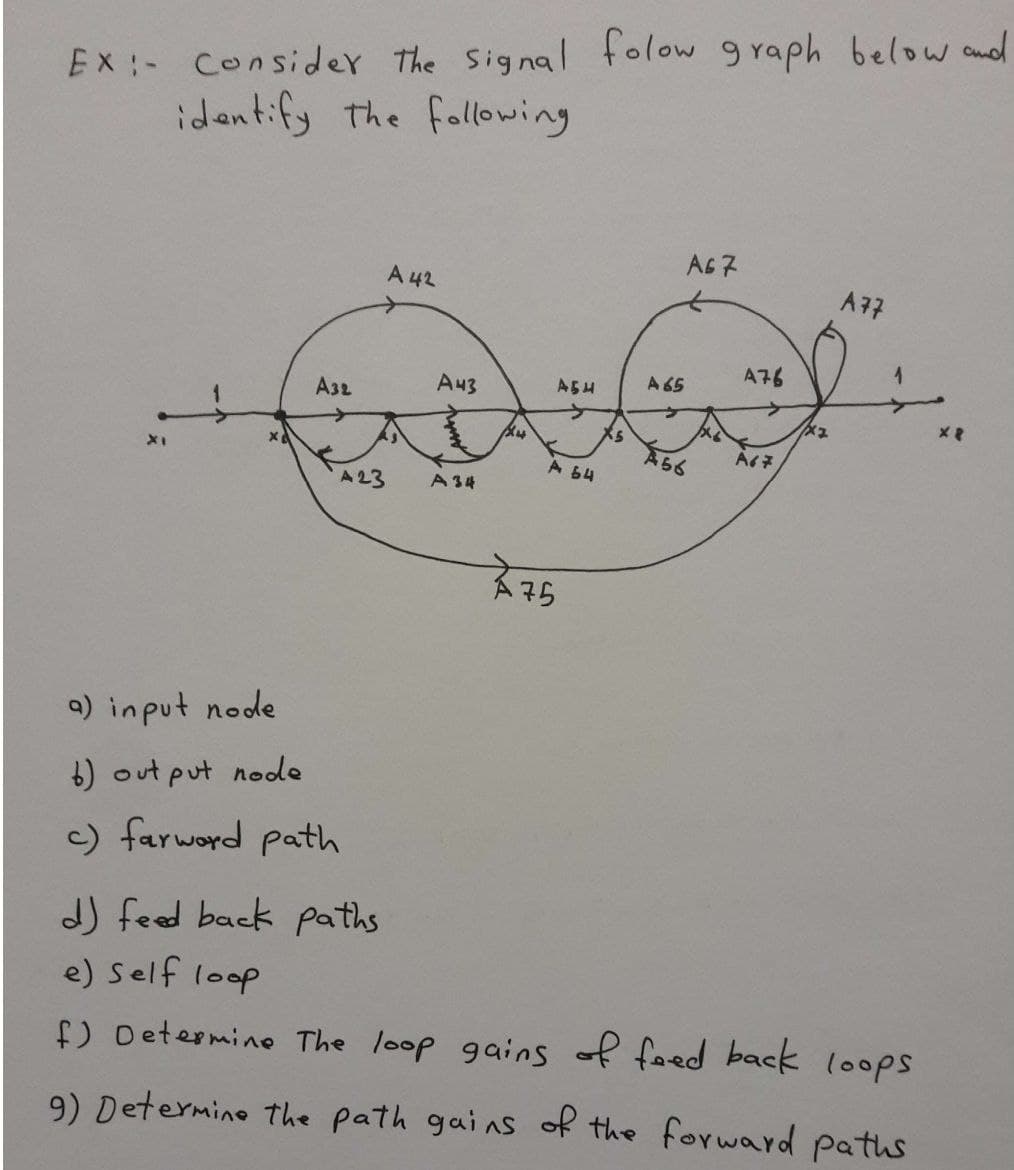 EX :- Consider The Signal folow graph below and
identify The following
A 42
A67
A77
1
A32
A43
A54
A65
A76
1
X1
X4
X5
X6
X8
A23
A34
A 54
A56
A67
A 75
a) input node
b) out put node
c) farword path
d) feed back paths
e) Self loop
f) Determine The loop gains of feed back loops
g) Determine the path gains of the forward paths